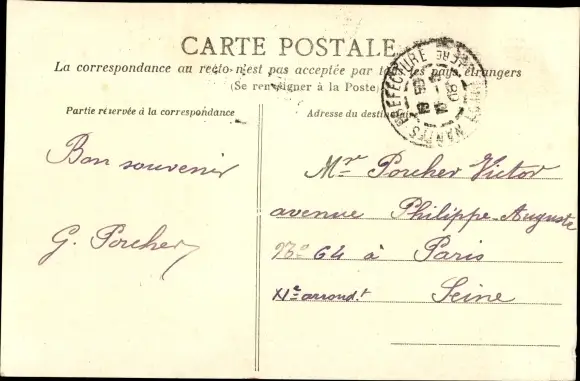 CARTE POSTALE
La correspondance au recto n'est pas acceptée par tous les pays étrangers
(Se renseigner à la Poste)
Partie réservée à la correspondance
Adresse du destinataire
Bon souvenir
G. Porcher
Mr Porcher Victor
avenue Philippe-Auguste
No 64 à Paris
XIe arrondt
Seine
PREFECTURE
NANTES